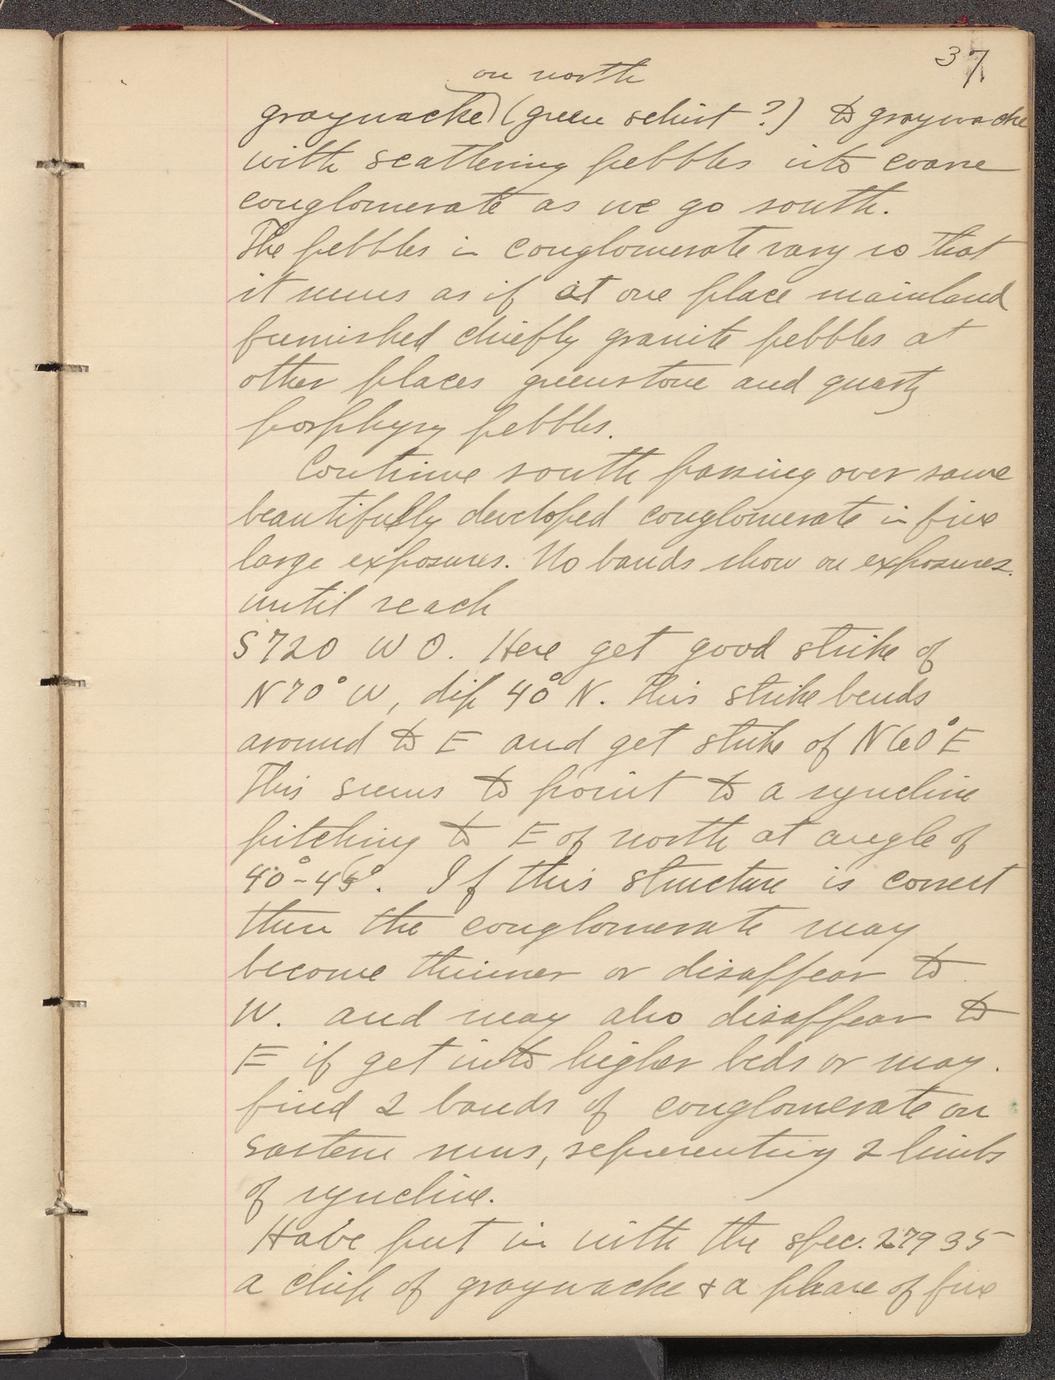 37
on north
graywacke) (green schist ?) to graywacke
with scattering pebbles into coarse
conglomerate as we go south.
The pebbles in conglomerate vary so that
it seems as if at one place mainland
furnished chiefly granite pebbles at
other places greenstone and quartz
porphyry pebbles.
Continue south passing over same
beautifully developed conglomerate in fine
large exposures. No bands show on exposures.
until reach
S720 W O. Here get good strike of
N70° W, dip 40° N. This strike bends
around to E and get strike of N60°E
This seems to point to a syncline
pitching to E of north at angle of
40°-45°. If this structure is correct
then the conglomerate may
become thinner or disappear to
W. and may also disappear to
E if get into higher beds or may.
find 2 bands of conglomerate on
eastern runs, representing 2 limbs
of syncline.
Have put in with the spec. 27935
a chip of graywacke & a phase of fine